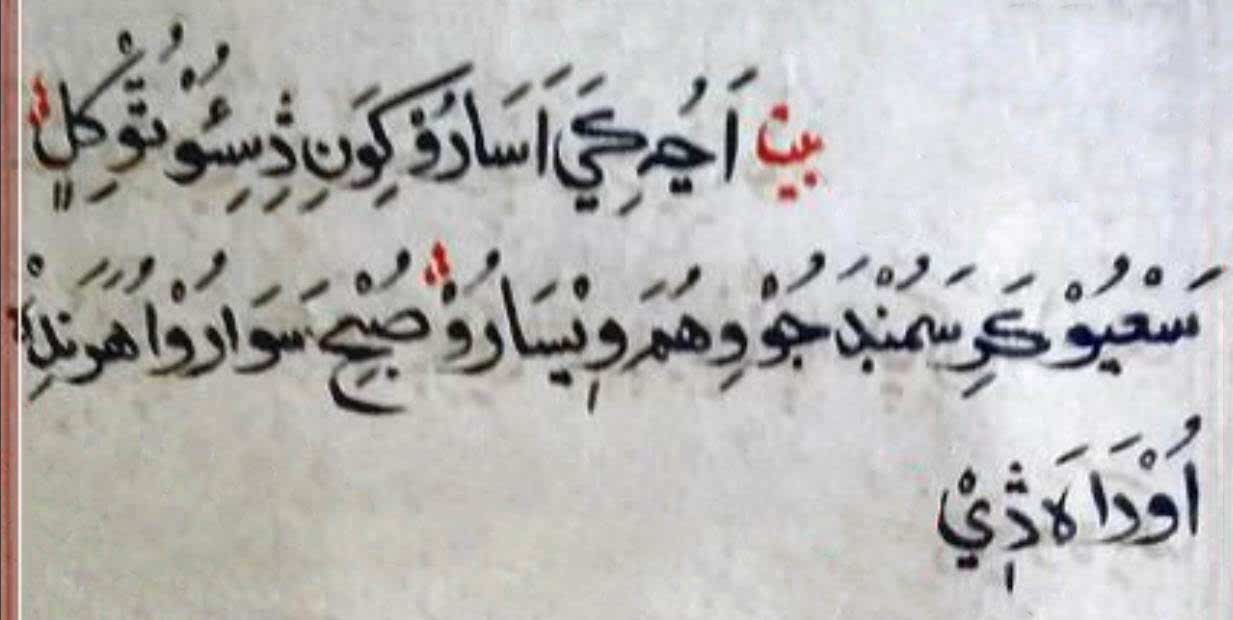 بيت اَجُرِكِيَ اَسَارُوْ كِوَنِ ڎِسِئُوْ تُوْكِلِ
سَعْيُوْ كَرِ سَمُنْدَ جُوْ وِهُمَ وِيْسَارُوْ صُبْحِ سَوَارُوْ اُهَرَنْدِ
اُوْدَاهَ ڎِيْ